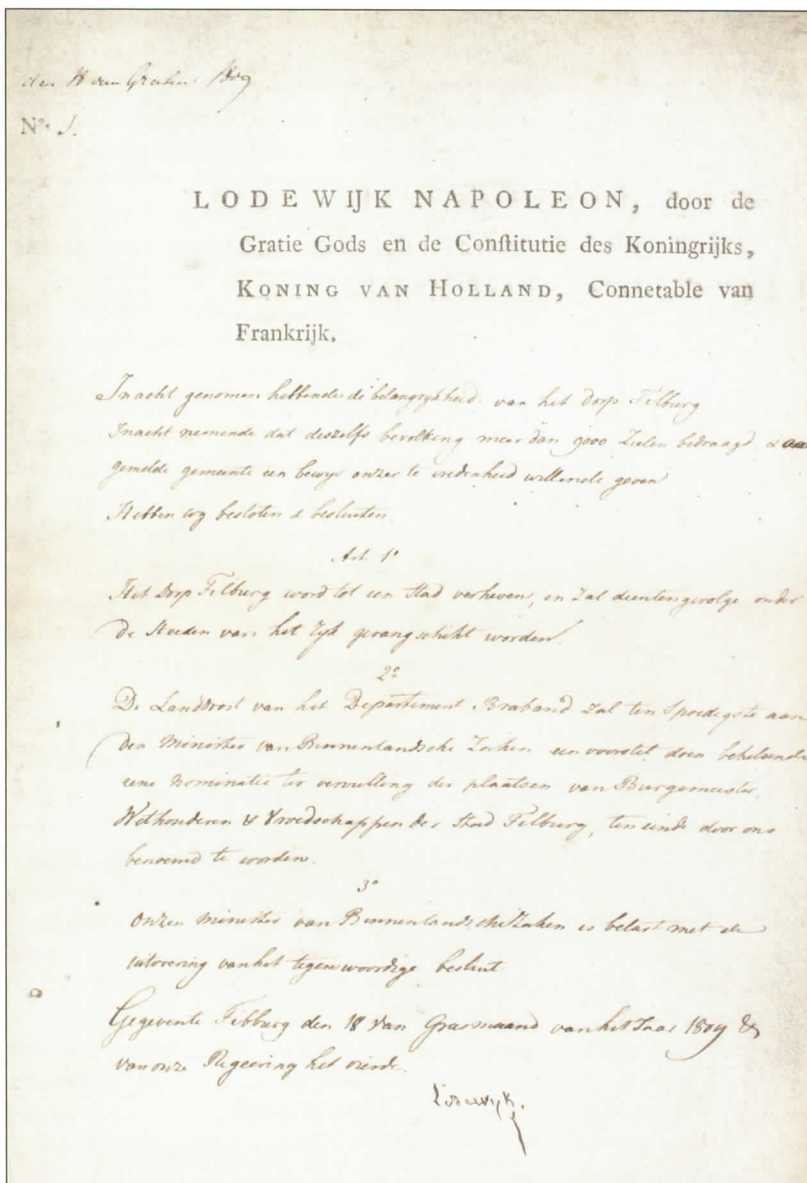 den 18 van Grasm: 1809
N°. 1.
LODEWIJK NAPOLEON, door de
Gratie Gods en de Conſtitutie des Koningrijks,
KONING VAN HOLLAND, Connetable van
Frankrijk.
In acht genomen hebbende de belangrykheid van het dorp Tilburg
In acht nemende dat deszelfs bevolking meer dan 9000 Zielen bedraagd & aan
gemelde gemeente een bewys onzer te vredenheid willende geven
Hebben wy besloten & besluiten
Art. 1°
Het Dorp Tilburg word tot een Stad verheven, en zal dientengevolge onder
de Steeden van het Ryk gerangschikt worden.
2°
De Landdrost van het Departement Braband zal ten spoedigste aan
den Minister van Binnenlandsche Zaken een voorstel doen behelsende
eene nominatie ter vervulling der plaatsen van Burgemeester,
Wethouderen & Vroedschappen der Stad Tilburg, ten einde door ons
benoemd te worden.
3°
Onzen Minister van Binnenlandsche Zaken is belast met de
uitvoering van het tegenwoordige besluit
Gegeven te Tilburg den 18 van Grasmaand van het Jaar 1809 &
van onze Regeering het vierde.
Lodewijk.